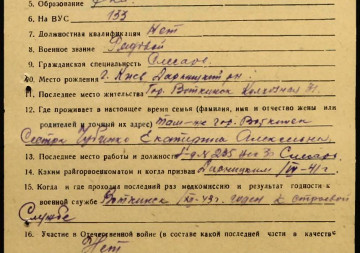 5. Образование
6. На ВУС 133
7. Должностная квалификация Нет
8. Военное звание Рядовой
9. Гражданская специальность Слесарь
10. Место рождения г. Киев Дарницкий рн
11. Последнее место жительства Гор. Воткинск Колхозная 31.
12. Где проживает в настоящее время семья (фамилия, имя и отчество жены или
родителей и точный их адрес) там-же гор. Воткинск
Сестра Екатерина Алексеевна
13. Последнее место работы и должность з-д № 235 Слесарь
14. Каким райгорвоенкоматом и когда призван Дарницким
15. Когда и где проходил последний раз медкомиссию и результат годности к
военной службе Воткинск годен к строевой
Службе
16. Участие в Отечественной войне (в составе какой последней части в качестве
Нет